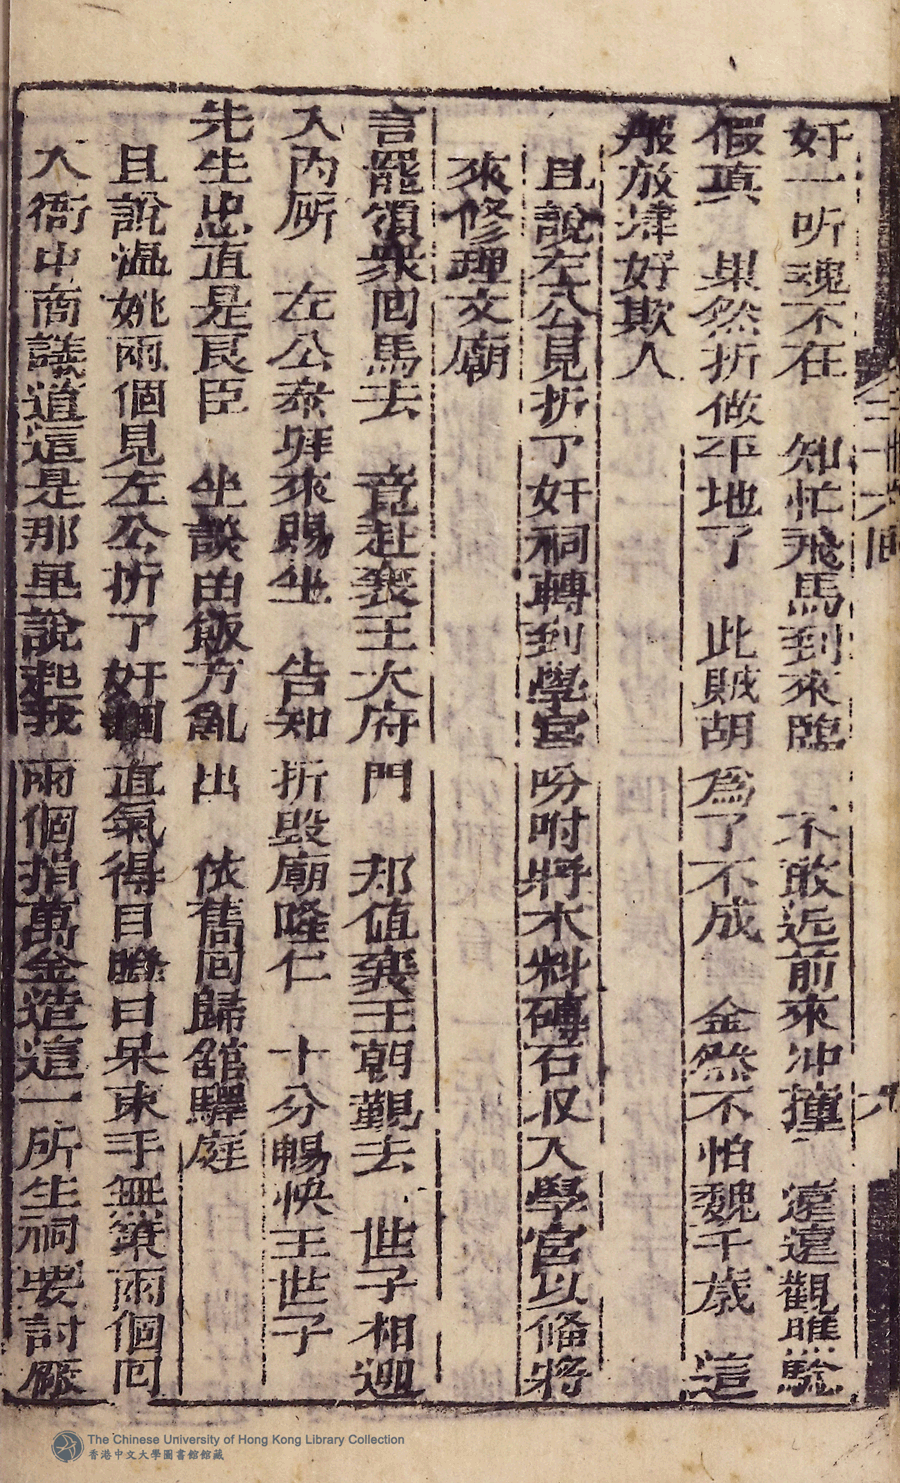 卷三十六回
八
奸一听魂不在　知忙飛馬到來臨　不敢近前來冲撞　遠遠觀瞧驗
假真　果然折做平地了　此賊胡為了不成　金然不怕魏千歲　這
般放肆好欺人
且說左公見折了奸祠轉到學宮吩咐將木料磚石収入學宮以俻將
來修理文廟
言罷領衆回馬去　竟赴襄王大府門　却值襄王朝覲去　世子相迎
入內所　左公叅拜來賜坐　告知折毁廟隆仁　十分暢快王世子
先生忠直是良臣　坐談由飯方亂出　依舊回歸舘驛庭
且說温姚兩個見左公折了奸祠直氣得目瞪口呆束手無策兩個回
入衙中商議道這是那里說起我兩個捐萬金造這一所生祠要討厰
The Chinese University of Hong Kong Library Collection
香港中文大學圖書館館藏